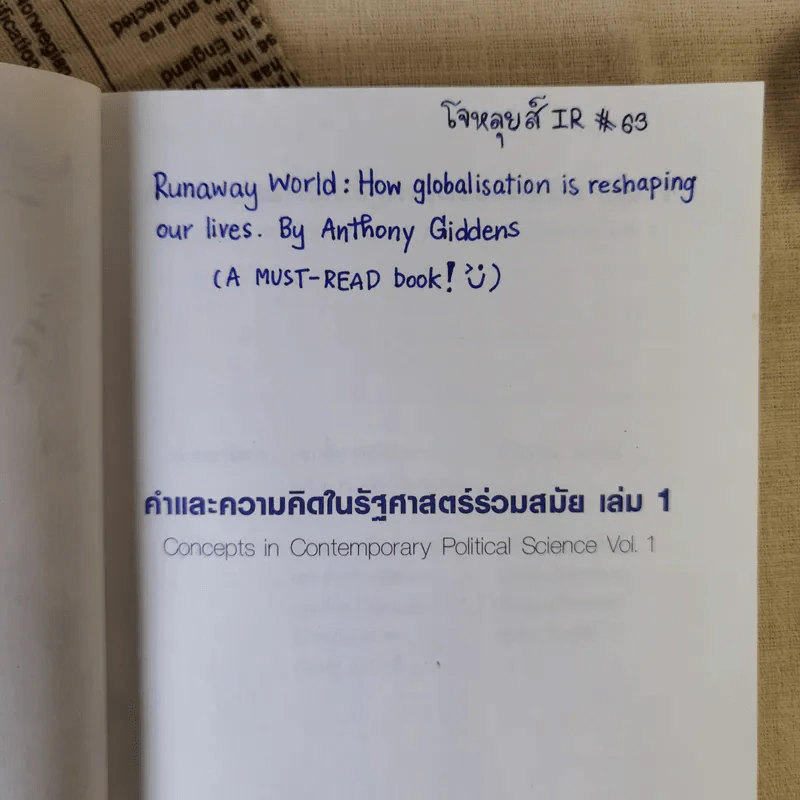 โจหลุยส์ IR #63
Runaway World: How globalisation is reshaping
our lives. By Anthony Giddens
(A MUST-READ book! :))
คำและความคิดในรัฐศาสตร์ร่วมสมัย เล่ม 1
Concepts in Contemporary Political Science Vol. 1